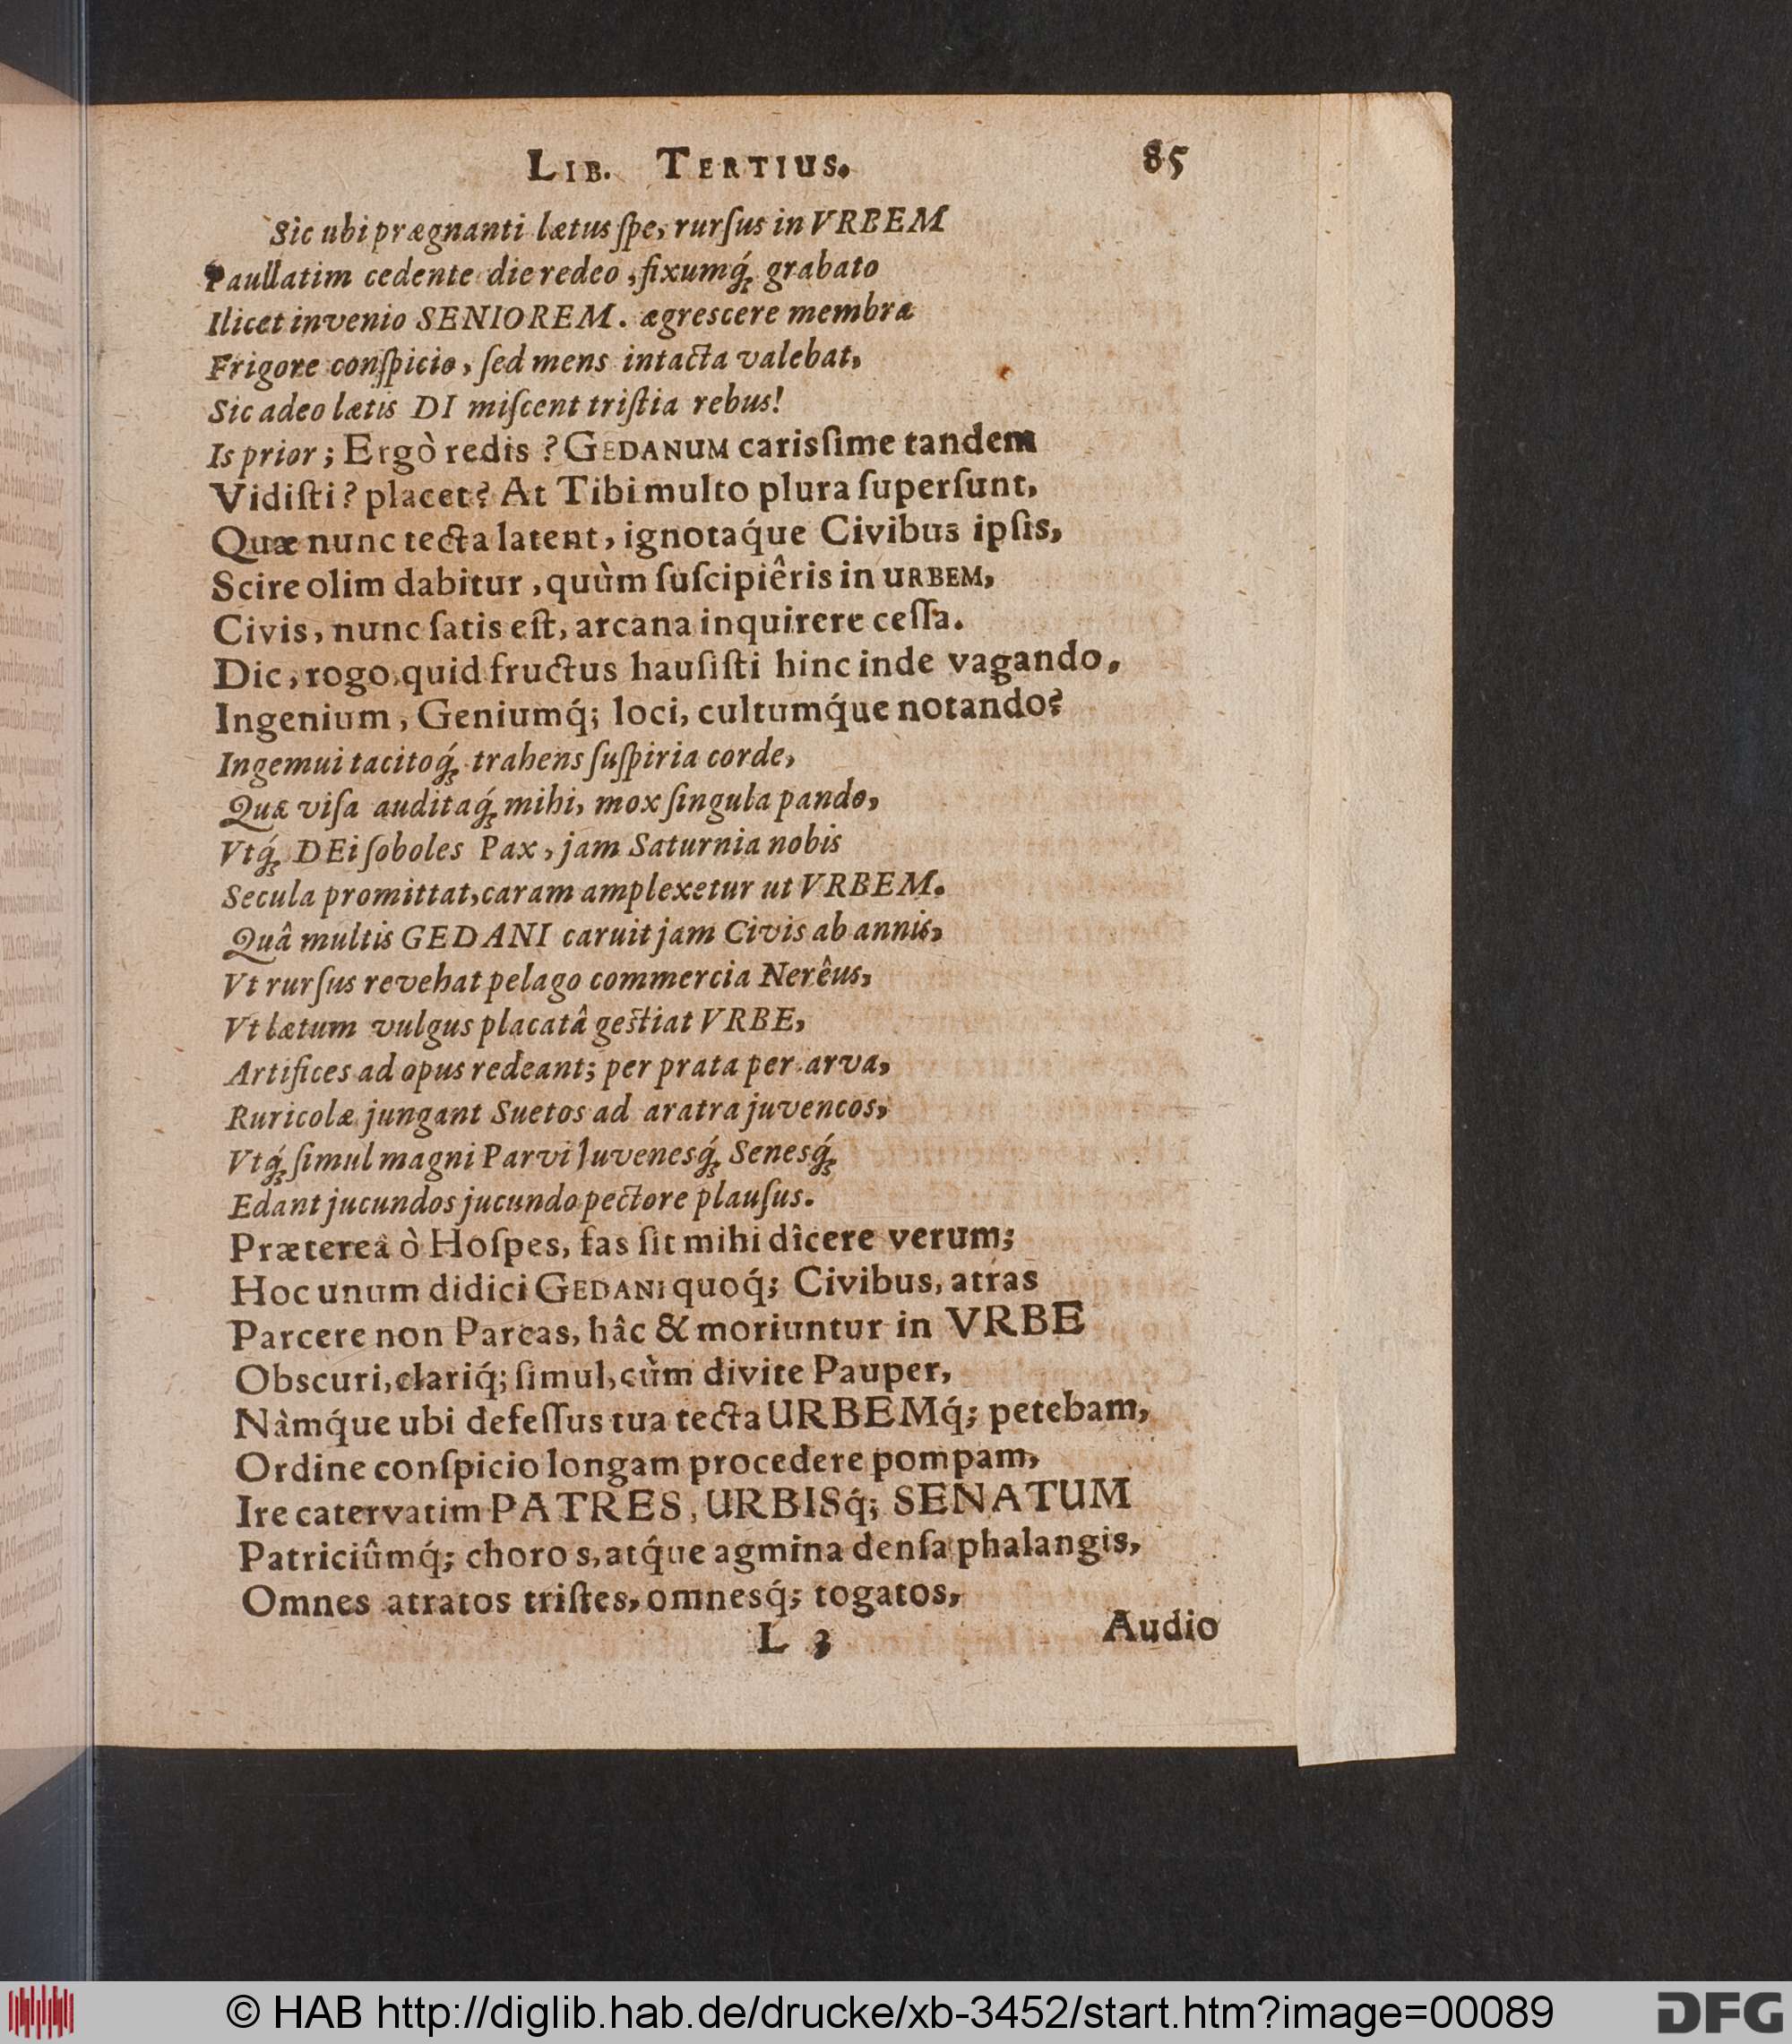 LIB. TERTIUS. 85
Sic ubi prægnanti lætus ſpe, rurſus in VRBEM
Paullatim cedente die redeo, fixumq́; grabato
Ilicet invenio SENIOREM. ægrescere membra
Frigore conſpicio, ſed mens intacta valebat,
Sic adeo lætis DI miſcent triſtia rebus!
Is prior; Ergò redis? GEDANUM carisſime tandem
Vidiſti? placet? At Tibi multo plura ſuperſunt,
Quæ nunc tecta latent, ignotaq́ue Civibus ipſis,
Scire olim dabitur, quùm ſuſcipiêris in URBEM,
Civis, nunc ſatis eſt, arcana inquirere ceſſa.
Dic, rogo, quid fructus hauſiſti hinc inde vagando,
Ingenium, Geniumq́; loci, cultumq́ue notando?
Ingemui tacitoq́; trahens ſuſpiria corde,
Quæ viſa auditaq́; mihi, mox ſingula pando,
Vtq́; DEi ſoboles Pax, jam Saturnia nobis
Secula promittat, caram amplexetur ut VRBEM.
Quâ multis GEDANI caruit jam Civis ab annis,
Vt rurſus revehat pelago commercia Nerêus,
Vt lætum vulgus placatâ geſtiat VRBE,
Artifices ad opus redeant; per prata per arva,
Ruricolæ jungant Suetos ad aratra juvencos,
Vtq́; ſimul magni Parvi Juvenesq́; Senesq́;
Edant jucundos jucundo pectore plauſus.
Prætereâ ò Hoſpes, fas ſit mihi dîcere verum;
Hoc unum didici GEDANI quoq́; Civibus, atras
Parcere non Parcas, hâc & moriuntur in VRBE
Obscuri, clariq́; ſimul, cùm divite Pauper,
Nàmq́ue ubi defeſſus tua tecta URBEMq́; petebam,
Ordine conſpicio longam procedere pompam,
Ire catervatim PATRES, URBISq́; SENATUM
Patriciûmq́; choro s, atq́ue agmina denſa phalangis,
Omnes atratos triſtes, omnesq́; togatos,
L 3 Audio
© HAB http://diglib.hab.de/drucke/xb-3452/start.htm?image=00089
DFG